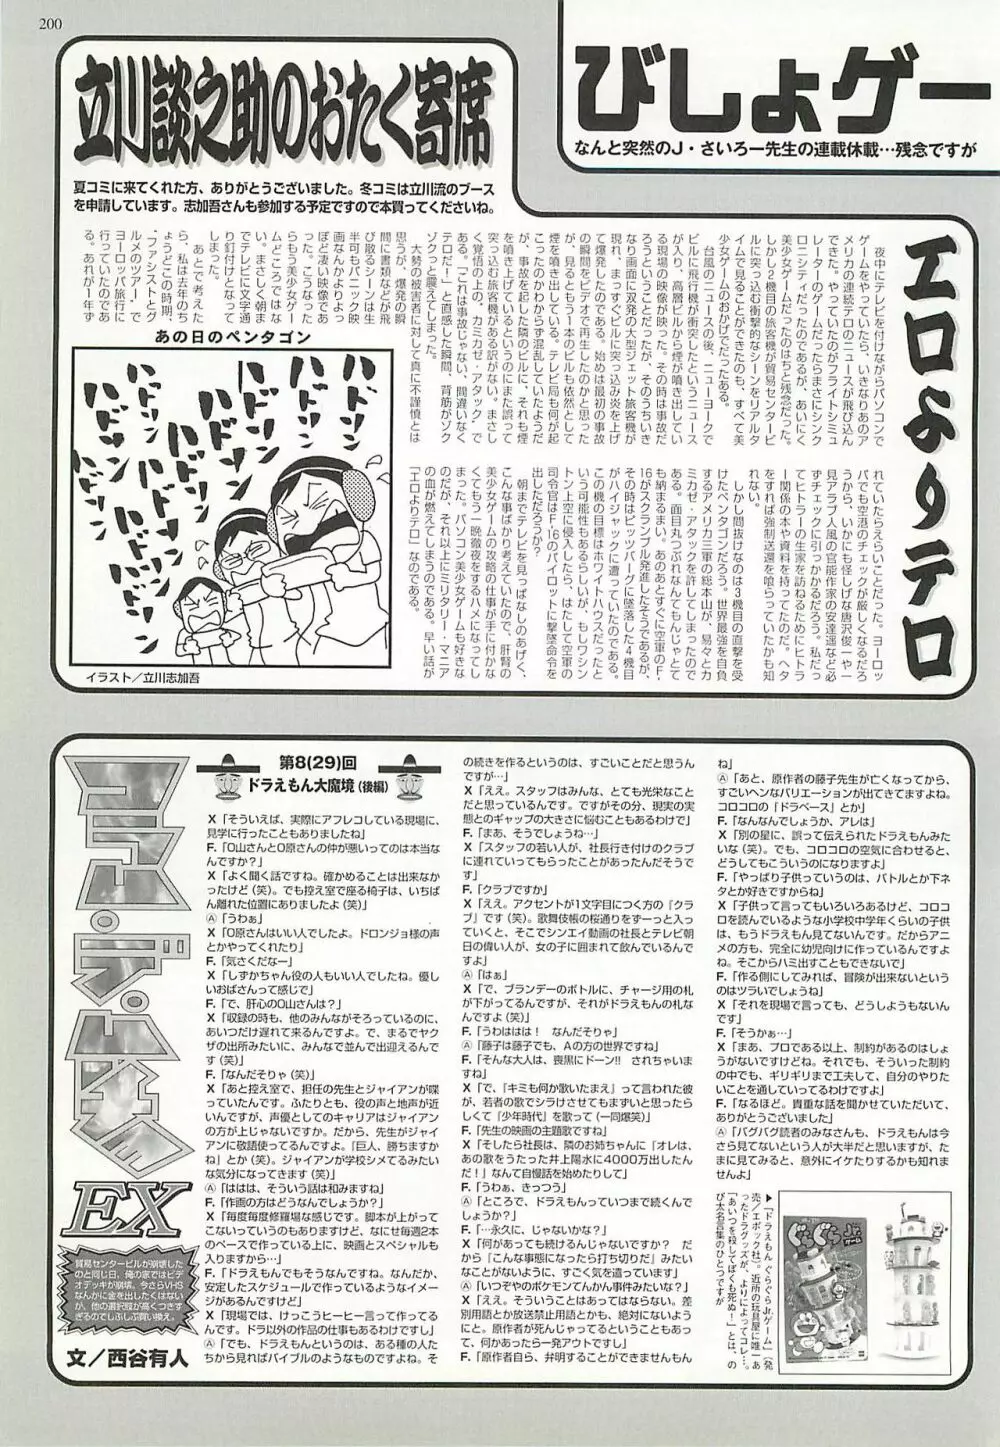 200
びしょゲー
なんと突然のJ・さいろー先生の連載休載…残念ですが
立川談之助のおたく寄席
夏コミに来てくれた方、ありがとうございました。冬コミは立川流のブース
を申請しています。志加吾さんも参加する予定ですので本買ってくださいね。
エロよりテロ
夜中にテレビを付けながらパソコンで
ゲームをやっていたら、いきなりあのア
メリカの連続テロのニュースが飛び込ん
できた。やっていたのがフライトシミュ
レーターのゲームだったらまさにシンク
ロニシティだったのであるが、あいにく
美少女ゲームだったのはちと残念だった。
しかし2機目の旅客機が貿易センタービ
ルに突っ込む衝撃的なシーンをリアルタ
イムで見ることができたのも、すべて美
少女ゲームのおかげでだったある。
台風のニュースの後、ニューヨークで
ビルに飛行機が衝突したというニュース
が入り、高層ビルから煙が噴き出してい
る現場の映像が映った。その時は事故だ
ろうということだったが、そのうちいき
なり画面に双発の大型ジェット旅客機が
現れ、まっすぐビルに突っ込み炎を上げ
て爆発したのである。始めは最初の事故
の瞬間をビデオで再生したのかと思った
が、見るともう1本のビルも依然として
煙を噴き出している。テレビ局も何が起
こったのかわからず混乱していたようだ
が、事故を起した隣のビルに、それも煙
を噴き上げているというのにまた誤って
突っ込む旅客機がある訳がない。まさし
く覚悟の上の、カミカゼ・アタック〟で
ある。「これは事故じゃない、間違いなく
テロだ!」と直感した瞬間、背筋がゾク
ゾクっと震えてしまった。
大勢の被害者に対して真に不謹慎とは
思うが、爆発の瞬
間に書類などが飛
び散るシーンは生
半可もパニック映
画なんかよりよっ
ぽど凄い映像であ
った。こうなった
らもう美少女ゲー
ムどころではな
い。まさしく朝ま
でテレビに文字通
り釘付けとなって
しまった。
あとで考えた
ら、私は去年のち
ょうどこの時期、
〝ファシストとグ
ルメのツアー〟で
ヨーロッパ旅行に
行っていたのであ
る。あれが1年ず
れていたらえらいことだった。ヨーロッ
パでも空港のチェックが厳しくなるだろ
うから、いかにも怪しげな唐沢俊一や一
見アラブ人風の官能作家の安達遥など必
ずチェックに引っかかるだろう。私だっ
てヒトラーの生家を訪ねるためにヒトラ
ー関係の本や資料を持ってたのだ。ヘタ
をすれば強制送還を喰らっていたかも知
れない。
しかし間抜けなのは3機目の直撃を受
けたペンタゴンだろう。世界最強を自負
するアメリカ三軍の総本山が、易々とカ
ミカゼ・アタックを許してしまったので
ある。面目丸つぶれなんてもんじゃとて
も納まるまい。あのあとすぐに空軍のF-
16がスクランブル発進したそうであるが、
その時はピッツバーグに墜落した4機目
がハイジャックに遭っていたのである。
この機の目標はホワイトハウスだったと
いう可能性もあるらしいが、もしワシン
トン上空に侵入したら、はたして空軍の
司令官はF-16のパイロットに撃墜命令を
出しただろうか?
朝までテレビを見っぱなしのあげく、
こんな事ばかり考えていたので、肝腎の
美少女ゲームの攻略の仕事が手に付かな
くてもう一晩徹夜をするハメになってし
まった。パソコン美少女ゲームも好きな
のだが、それ以上にミリタリー・マニア
の血が燃えてしまうのである。早い話が
「エロよりテロ」なのである。
あの日のペンタゴン
ハドソン
ハドソン
ハドソン
ハドソン
ハドソン
ハドソン
ハドソン
イラスト/立川志加吾
EX
貿易センタービルが崩壊した
のと同じ日、俺の家ではビデ
オデッキが崩壊。今さらVHS
なんかに金を出したくはない
が、他の選択肢が高くつきす
ぎるのでしぶしぶ買い換え。
文/西谷有人
第8(29)回
ドラえもん大魔境(後編)
X「そういえば、実際にアフレコしている現場に、
見学に行ったこともありましたね」
F.「O山さんとO原さんの仲が悪いってのは本当な
んですか?」
X「よく聞く話ですね。確かめることは出来なか
ったけど(笑)。でも控え室で座る椅子は、いちば
ん離れた位置にありましたよ(笑)」
Ⓐ「うわぁ」
X「O原さんはいい人でしたよ。ドロンジョ様の声
とかやってくれたり」
F.「気さくだなー」
X「しずかちゃん役の人もいい人でしたね。優し
いおばさんって感じで」
F.「で、肝心のO山さんは?」
X「収録の時も、他のみんながそろっているのに、
あいつだけ遅れて来るんですよ。で、まるでヤク
ザの出所みたいに、みんなで並んで出迎えるんで
す(笑)」
F.「なんだそりゃ(笑)」
X「あと控え室で、担任の先生とジャイアンが喋
っていたんです。ふたりとも、役の声と地声が近
いんですが、声優としてのキャリアはジャイアン
の方が上じゃないですか。だから、先生がジャイ
アンに敬語使ってるんですよ。『巨人、勝ちますか
ね』とか(笑)。ジャイアンが学校シメてるみたい
な気分になってきます(笑)」
Ⓐ「ははは、そういう話は和みますね」
F.「作画の方はどうなんでしょうか?」
X「毎度毎度修羅場な感じです。脚本が上がって
こないっていうのもありますけど、なにせ毎週2本
のペースで作っている上に、映画とスペシャルも
入りますから…」
F.「ドラえもんでもそうなんですね。なんだか、
安定したスケジュールで作っているようなイメー
ジがあるんですけど」
X「現場では、けっこうヒーヒー言って作ってる
んです。ドラ以外の作品の仕事もあるわけですし」
Ⓐ「でも、ドラえもんというのは、ある種の人た
ちから見ればバイブルのようなものですよね。そ
の続きを作るというのは、すごいことだと思うん
ですが…」
X「ええ。スタッフはみんな、とても光栄なこと
だと思っているんです。ですがその分、現実の実
態とのギャップの大きさに悩むこともあるわけで」
F.「まあ、そうでしょうね…」
X「スタッフの若い人が、社長行き付けのクラブ
に連れていってもらったことがあったんだそうで
す」
F.「クラブですか」
X「ええ。アクセントが1文字目につく方の『クラ
ブ』です(笑)。歌舞伎帳の桜通りをずーっと入っ
ていくと、そこでシンエイ動画の社長とテレビ朝
日の偉い人が、女の子に囲まれて飲んでいるんで
すよ」
Ⓐ「はぁ」
X「で、ブランデーのボトルに、チャージ用の札
が下がってるんですが、それがドラえもんの札な
んですよ(笑)」
F.「うわははは! なんだそりゃ」
Ⓐ「藤子は藤子でも、Aの方の世界ですね」
F.「そんな大人は、喪黒にドーン!! されちゃいま
すね」
X「で、『キミも何か歌いたまえ』って言われた彼
が、若者の歌でシラけさせてもまずいと思ったら
しくて『少年時代』を歌って(一同爆笑)」
F.「先生の映画の主題歌ですね」
X「そしたら社長は、隣のお姉ちゃんに『オレは、
あの歌をうたった井上陽水に4000万出したん
だ!』なんて自慢話を始めたりして」
F.「うわぁ、きっつう」
Ⓐ「ところで、ドラえもんっていつまで続くんで
しょうか?」
F.「…永久に、じゃないかな?」
X「何があっても続けるんじゃないですか? だ
から『こんな事態になったら打ち切りだ』みたい
なことがないように、すごく気を遣っています」
Ⓐ「いつぞやのポケモンてんかん事件みたいな?」
X「ええ。そういうことはあってはならない。差
別用語とか放送禁止用語とかも、絶対にないよう
にと。原作者が死んじゃってるということもあっ
て、何かあったら一発アウトですし」
F.「原作者自ら、弁明することができませんもん
ね」
Ⓐ「あと、原作者の藤子先生が亡くなってから、
すごいヘンなバリエーションが出てきてますよね。
コロコロの『ドラベース』とか」
F.「なんなんでしょうか、アレは」
X「別の星に、誤って伝えられたドラえもんみた
いな(笑)。でも、コロコロの空気に合わせると、
どうしてもこういうのになりますよ」
F.「やっぱり子供っていうのは、バトルとか下ネ
タとか好きですからね」
X「子供って言ってもいろいろあるけど、コロコ
ロを読んでいるような小学校中学年くらいの子供
は、もうドラえもん見てないんです。だからアニ
メの方も、完全に幼児向けに作っているんですよ
ね。そこからハミ出すこともできないで」
F.「作る側にしてみれば、冒険が出来ないという
のはツラいでしょうね」
X「それを現場で言っても、どうしようもないん
です」
F.「そうかぁ…」
X「まあ、プロである以上、制約があるのはしょ
うがないですけどね。それでも、そういった制約
の中でも、ギリギリまで工夫して、自分のやりた
いことを通していってるわけですよ」
F.「なるほど。貴重な話を聞かせていただいて、
ありがとうございました」
Ⓐ「パグパグ読者のみなさんも、ドラえもんは今
さら見てないという人が大半だと思いますが、た
まに見てみると、意外にイケたりするかも知れま
せんよ」
▶「ドラえもん ぐらぐらJr.ゲーム」(発
売/エポック社)。近所の玩具屋に唯一あ
ったドラグッズが、よりによってコレ…。
「あいつを殺してぼくも死ぬー」とは、の
び太名言集のひとつですが
ぐらぐらJr.ゲーム